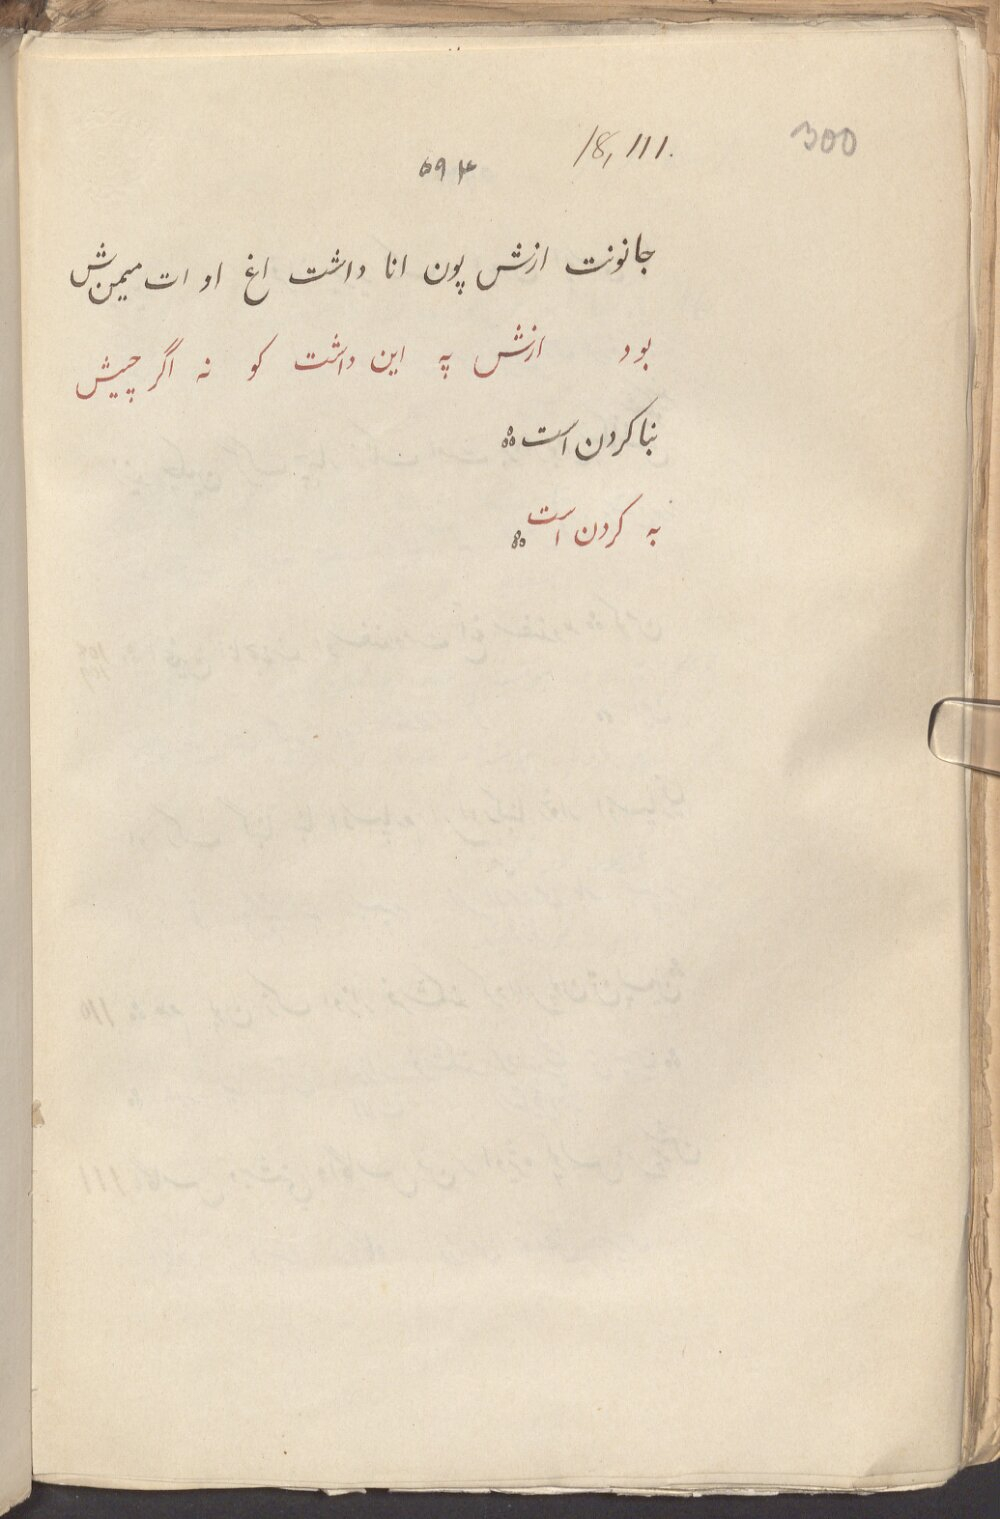 300
18, 111.
۵۹۴
جانونت ازش پون انا داشت اغ او ات میمن ش
بود ازش په این داشت کو نه اگر چیش
بنا کردن است
به کردن است